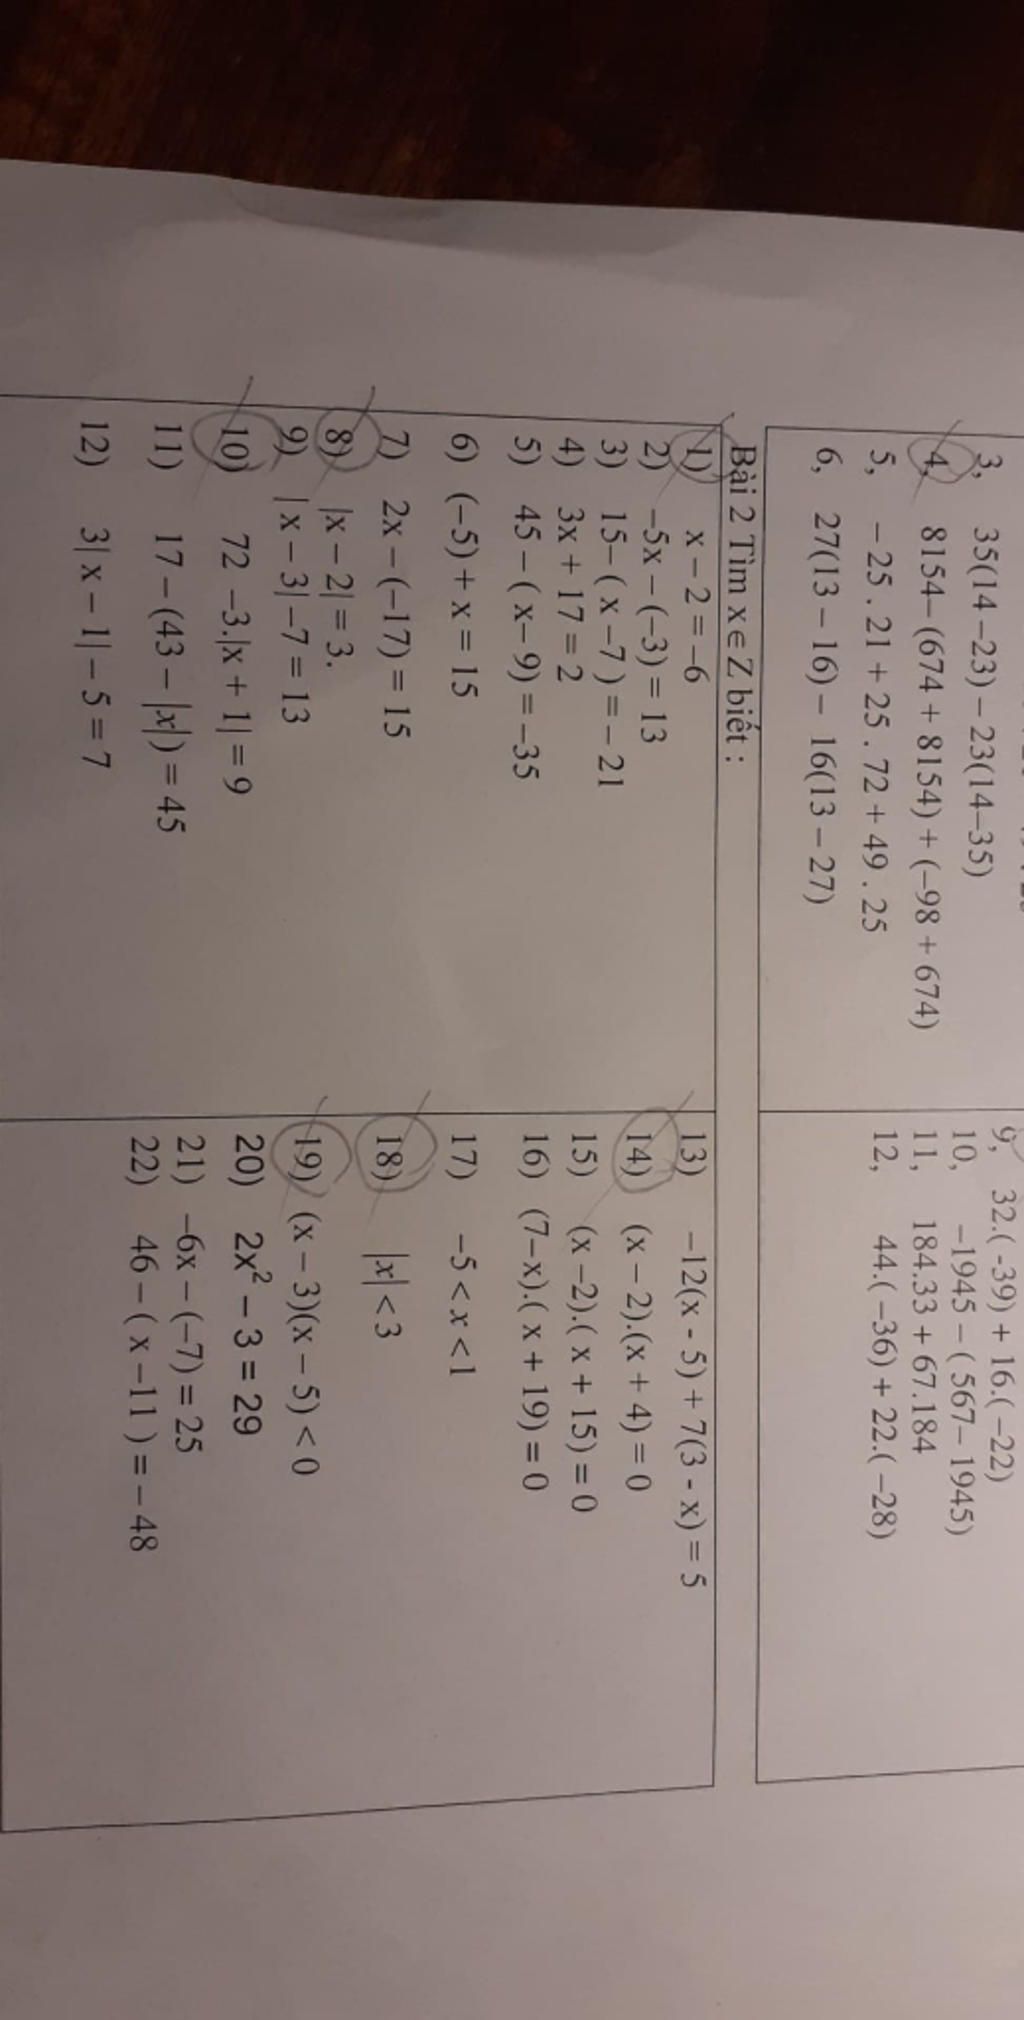 3, 35(14 –23) – 23(14–35)
4, 8154– (674 + 8154) + (–98 + 674)
5, – 25 . 21 + 25 . 72 + 49 . 25
6, 27(13 – 16) – 16(13 – 27)
9, 32.( -39) + 16.( –22)
10, –1945 – ( 567– 1945)
11, 184.33 + 67.184
12, 44.( –36) + 22.( –28)
Bài 2 Tìm x∈Z biết :
1) x – 2 = –6
2) –5x – (–3) = 13
3) 15– ( x –7 ) = – 21
4) 3x + 17 = 2
5) 45 – ( x– 9) = –35
6) (–5) + x = 15
7) 2x – (–17) = 15
8) |x – 2| = 3.
9) | x – 3| –7 = 13
10) 72 –3.|x + 1| = 9
11) 17 – (43 – |x|) = 45
12) 3| x – 1| – 5 = 7
13) –12(x - 5) + 7(3 - x) = 5
14) (x – 2).(x + 4) = 0
15) (x –2).( x + 15) = 0
16) (7–x).( x + 19) = 0
17) –5 < x < 1
18) |x| < 3
19) (x – 3)(x – 5) < 0
20) 2x² – 3 = 29
21) –6x – (–7) = 25
22) 46 – ( x –11 ) = – 48